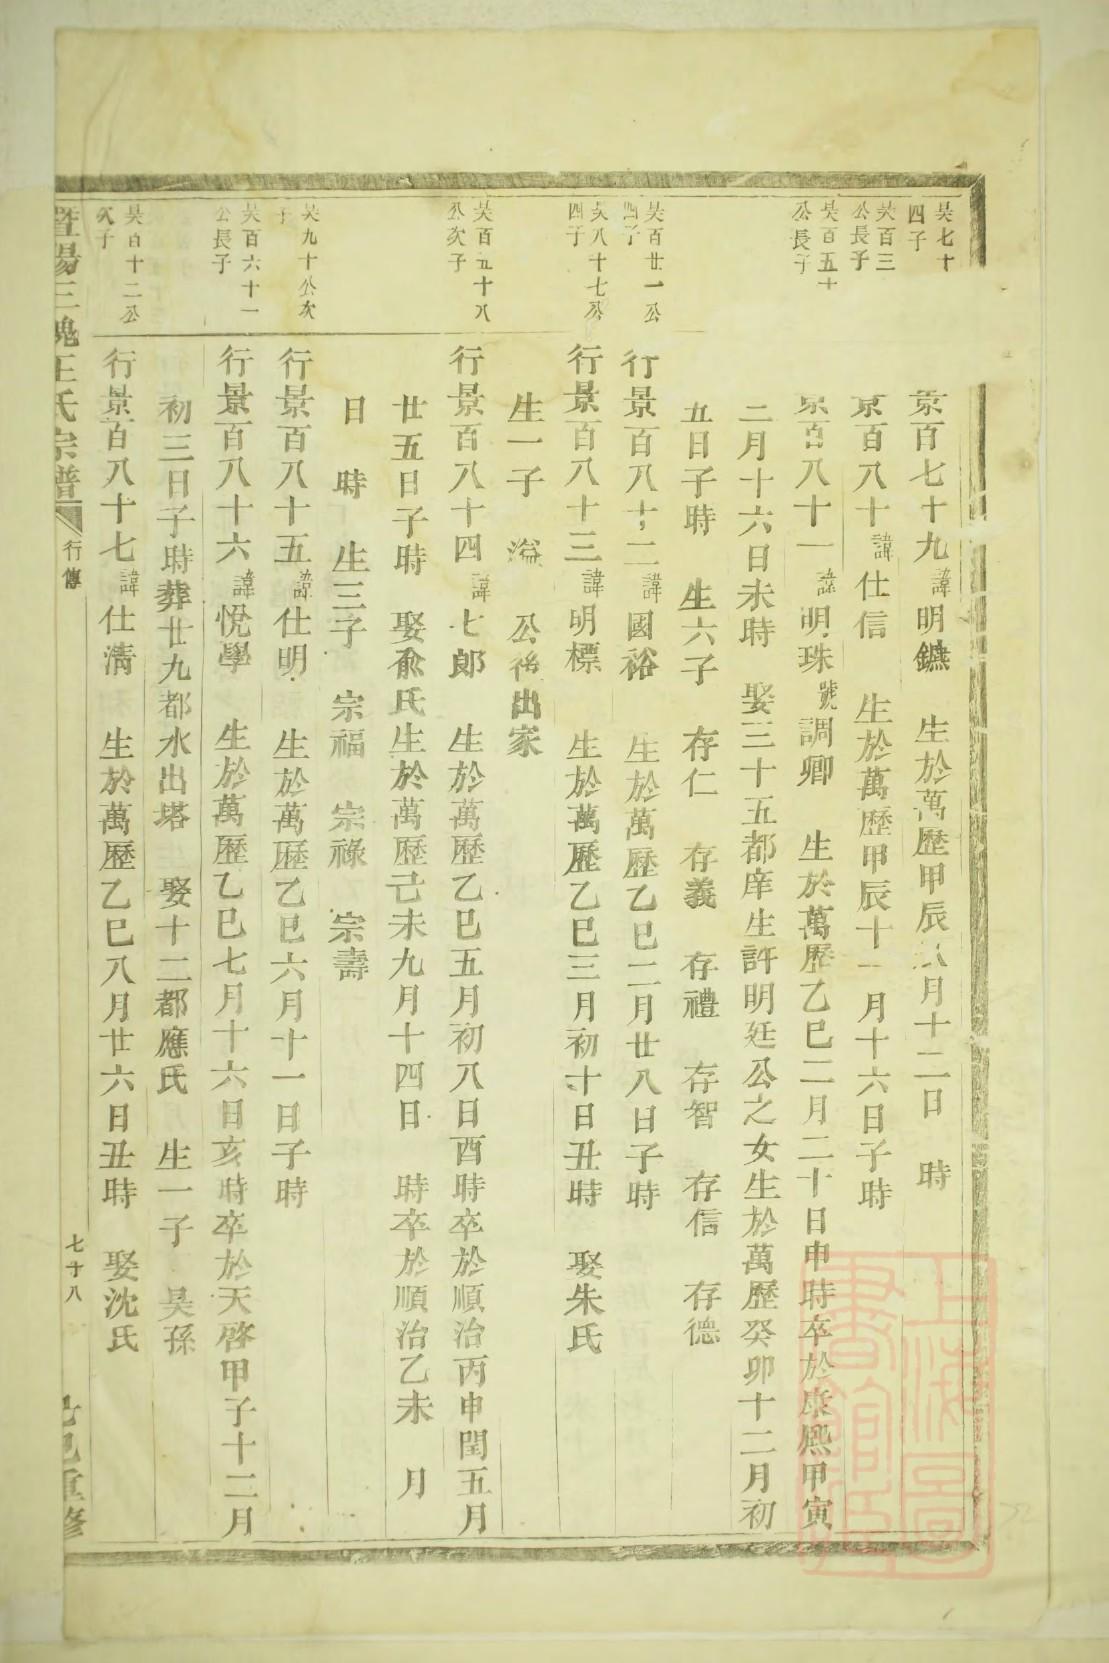 昊七十
四子
景百七十九諱明鑣 生於萬歷甲辰 月十二日 時
昊百三
公長子
景百八十諱仕信 生於萬歷甲辰十一月十六日子時
昊百五十
公長子
景百八十一諱明珠號調卿 生於萬歷乙巳二月二十日申時卒於康熙甲寅
二月十六日未時 娶三十五都庠生許明廷公之女生於萬歷癸卯十二月初
五日子時 生六子 存仁 存義 存禮 存智 存信 存德
昊百廿一公
四子
行景百八十二諱國裕 生於萬歷乙巳二月廿八日子時
昊八十七公
四子
行景百八十三諱明標 生於萬歷乙巳三月初十日丑時 娶朱氏
生一子 溢 公後出家
昊百五十八
公次子
行景百八十四諱七郎 生於萬歷乙巳五月初八日酉時卒於順治丙申閏五月
廿五日子時 娶俞氏生於萬歷己未九月十四日 時卒於順治乙未 月
日 時 生三子 宗福 宗祿 宗壽
昊九十公次
子
行景百八十五諱仕明 生於萬歷乙巳六月十一日子時
昊百六十一
公長子
行景百八十六諱悅學 生於萬歷乙巳七月十六日亥時卒於天啓甲子十二月
初三日子時葬廿九都水出塔 娶十二都應氏 生一子 昊孫
昊百十二公
次子
行景百八十七諱仕清 生於萬歷乙巳八月廿六日丑時 娶沈氏
暨陽三槐王氏宗譜 行傳 七十八 己巳重修
上海圖
書館藏